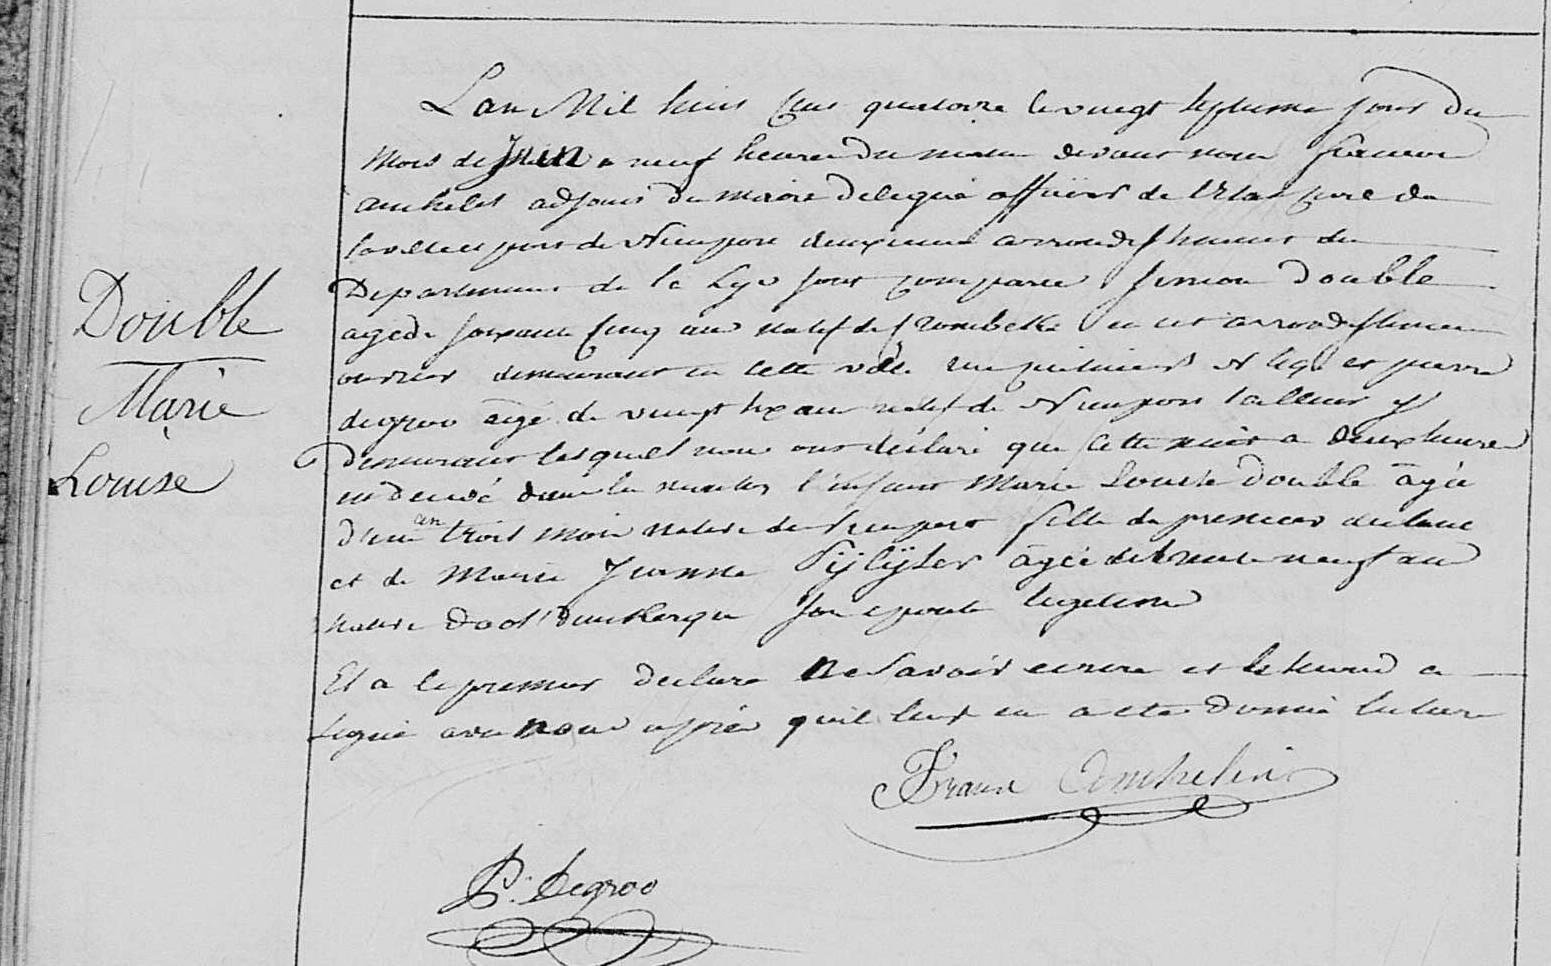 Double
Marie
Louise
L'an Mil huit Cent quatorze le vingt septieme jour du
mois de Juin a neuf heures du matin devant nous
adjoint du maire delegué officier de l'Etat Civil de
la ville et port de Nieuport deuxieme arrondissement du
Departement de la Lys sont comparu Simon Double
agé de soixante Cinq ans natif de Crombeke en cet arrondissement
ouvrier demeurant en cette ville et pierre
degroo agé de vingt six ans natif de Nieuport tailleur y
demeurant lesquels nous ont déclaré que cette nuit a deux heures
est decedé dans la l'enfant Marie Louise Double agée
d'un an trois mois native de Nieuport fille du premier declarant
et de Marie Jeanne agée de trente neuf ans
native d'ost dunkerque son epouse legitime
Et a le premier declaré ne savoir ecrire et le second a
signé avec nous après qu'il leur en a etée donné lecture
P. Degroo